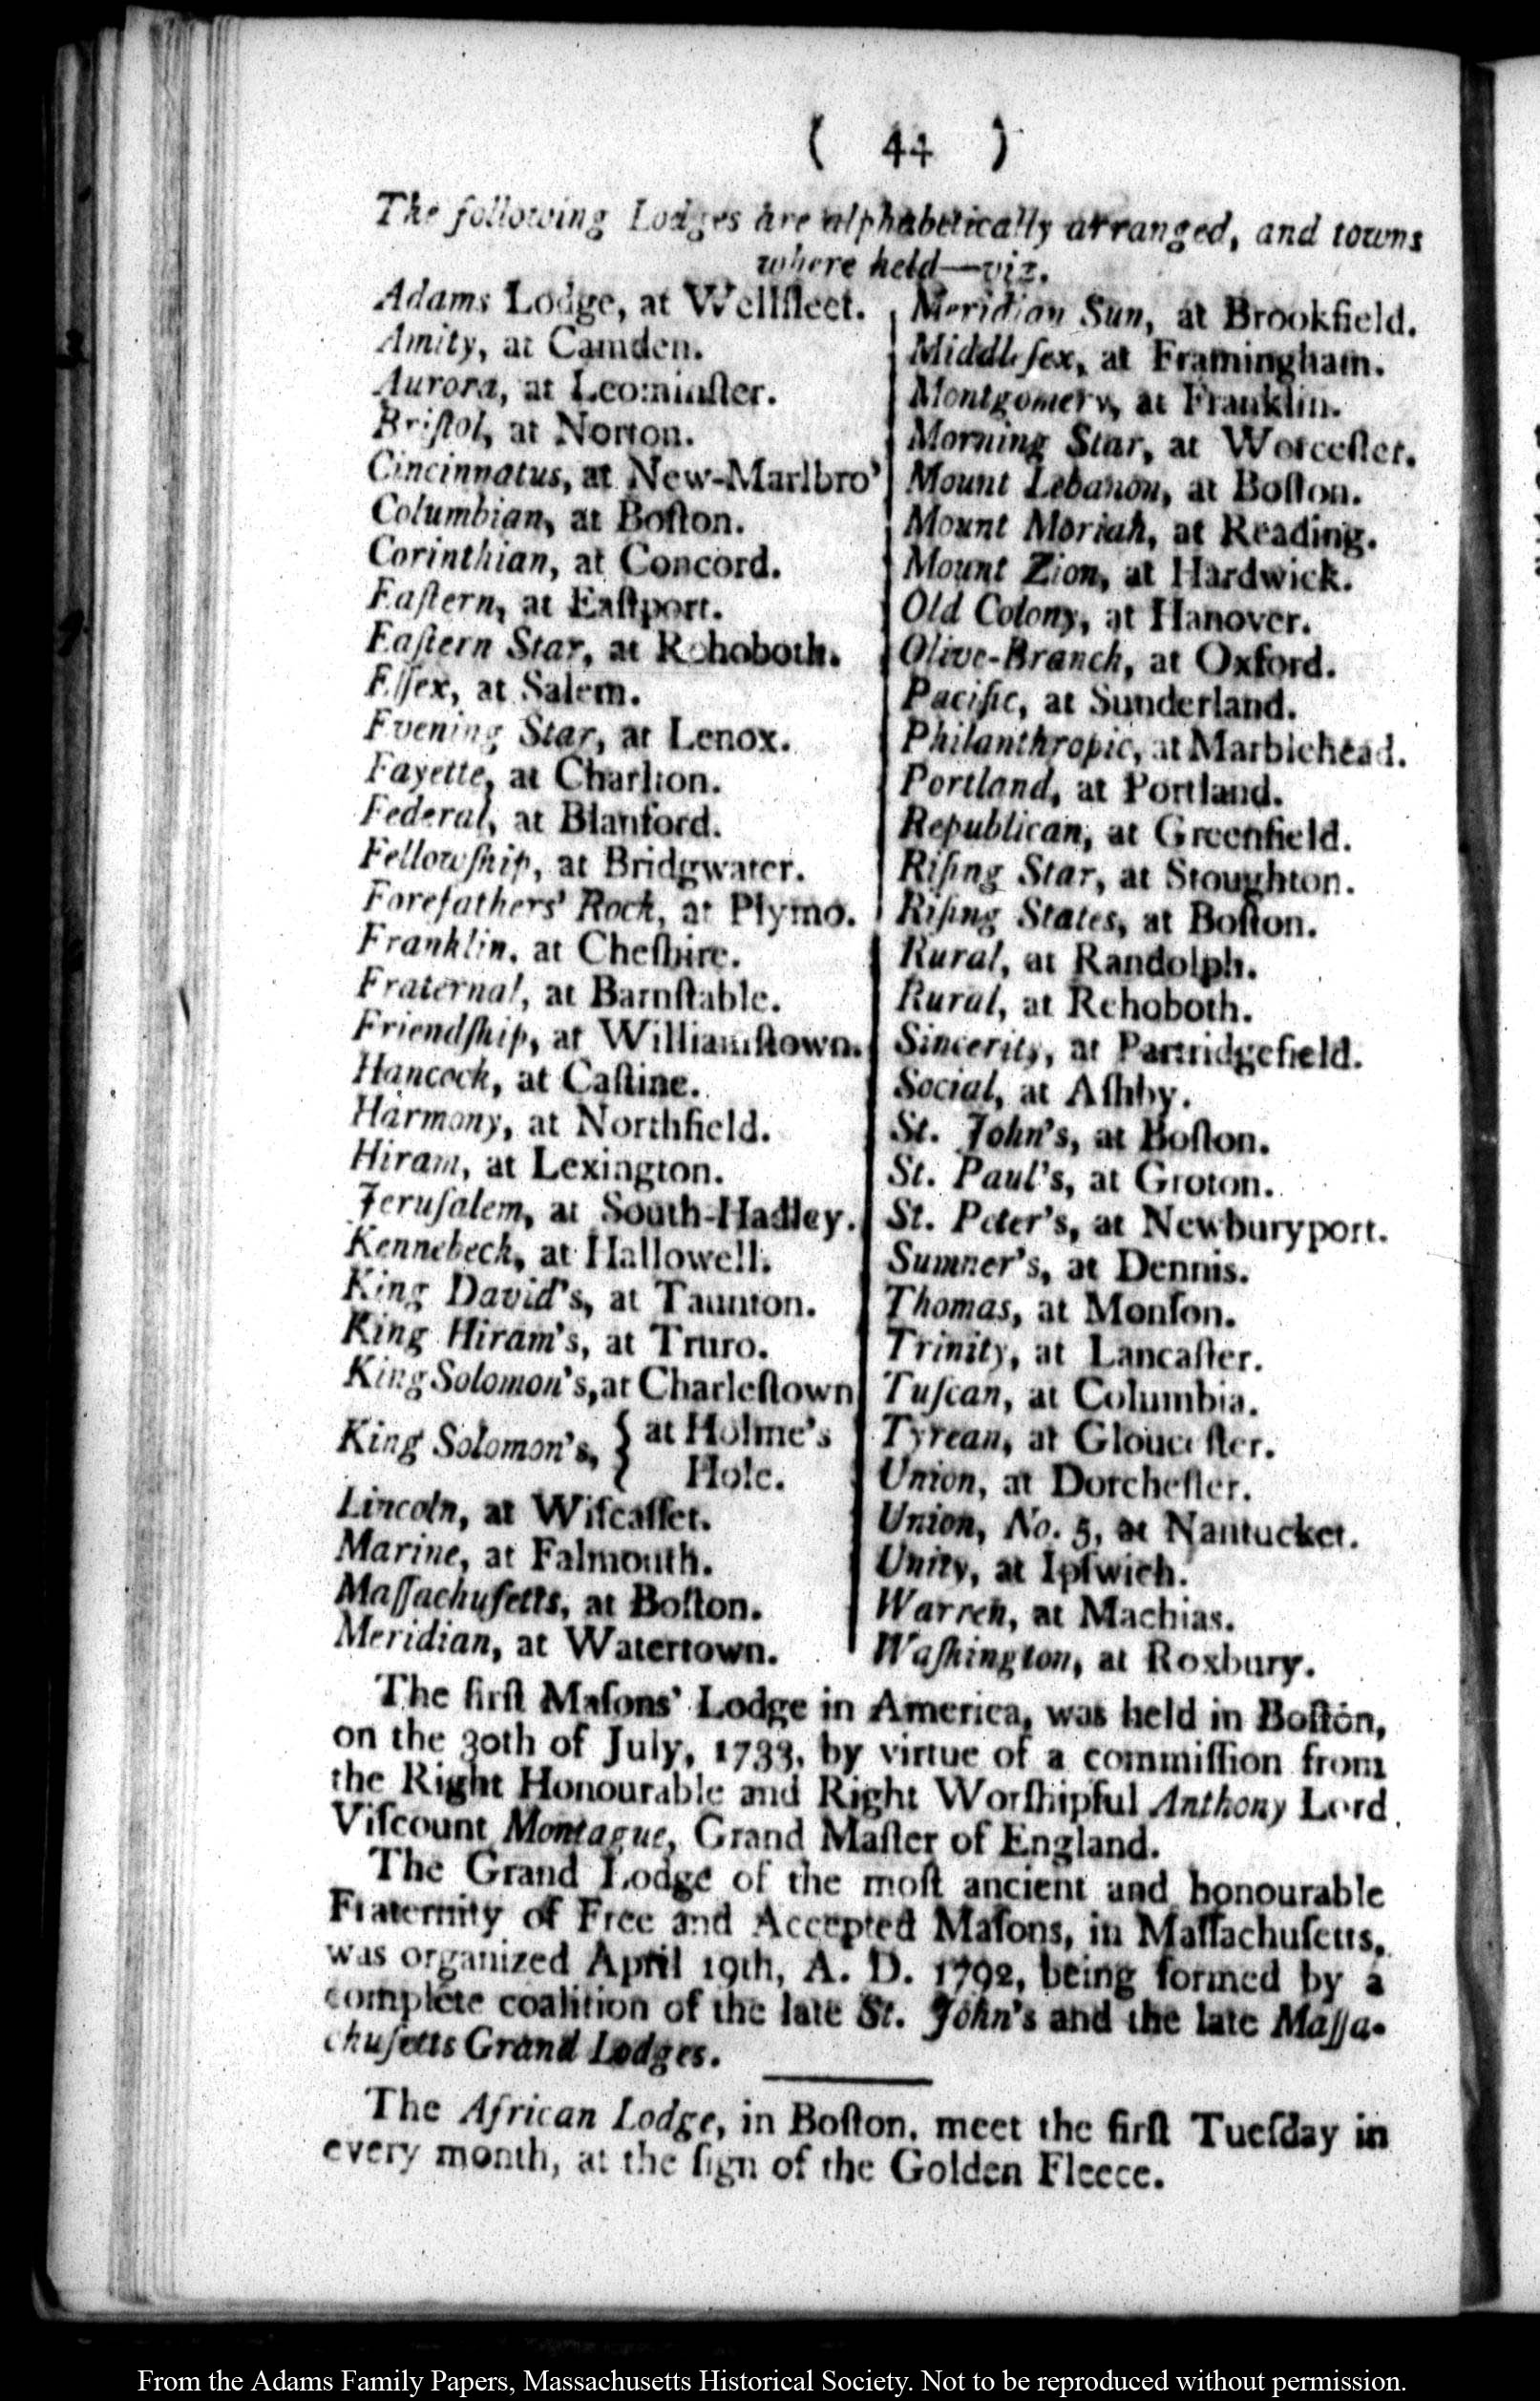 ( 44 )
The following Lodges are alphabetically arranged, and towns
where held—viz.
Adams Lodge, at Wellfleet.
Amity, at Camden.
Aurora, at Leominſter.
Briſtol, at Norton.
Cincinnatus, at New-Marlbro'
Columbian, at Boſton.
Corinthian, at Concord.
Eaſtern, at Eaſtport.
Eaſtern Star, at Rehoboth.
Eſſex, at Salem.
Evening Star, at Lenox.
Fayette, at Charlton.
Federal, at Blanford.
Fellowſhip, at Bridgwater.
Forefathers' Rock, at Plymo.
Franklin, at Cheſhire.
Fraternal, at Barnſtable.
Friendſhip, at Williamſtown.
Hancock, at Caſtine.
Harmony, at Northfield.
Hiram, at Lexington.
Jeruſalem, at South-Hadley.
Kennebeck, at Hallowell.
King David's, at Taunton.
King Hiram's, at Truro.
King Solomon's, at Charleſtown
King Solomon's, { at Holme's
Hole.
Lincoln, at Wiſcaſſet.
Marine, at Falmouth.
Maſſachuſetts, at Boſton.
Meridian, at Watertown.
Meridian Sun, at Brookfield.
Middleſex, at Framingham.
Montgomery, at Franklin.
Morning Star, at Worceſter.
Mount Lebanon, at Boſton.
Mount Moriah, at Reading.
Mount Zion, at Hardwick.
Old Colony, at Hanover.
Olive-Branch, at Oxford.
Pacific, at Sunderland.
Philanthropic, at Marblehead.
Portland, at Portland.
Republican, at Greenfield.
Riſing Star, at Stoughton.
Riſing States, at Boſton.
Rural, at Randolph.
Rural, at Rehoboth.
Sincerity, at Partridgefield.
Social, at Aſhby.
St. John's, at Boſton.
St. Paul's, at Groton.
St. Peter's, at Newburyport.
Sumner's, at Dennis.
Thomas, at Monſon.
Trinity, at Lancaſter.
Tuſcan, at Columbia.
Tyrean, at Glouceſter.
Union, at Dorcheſter.
Union, No. 5, at Nantucket.
Unity, at Ipſwich.
Warren, at Machias.
Waſhington, at Roxbury.
The firſt Maſons' Lodge in America, was held in Boſton,
on the 30th of July, 1733, by virtue of a commiſſion from
the Right Honourable and Right Worſhipful Anthony Lord
Viſcount Montague, Grand Maſter of England.
The Grand Lodge of the moſt ancient and honourable
Fraternity of Free and Accepted Maſons, in Maſſachuſetts,
was organized April 19th, A. D. 1792, being formed by a
complete coalition of the late St. John's and the late Maſſa-
chuſetts Grand Lodges.
The African Lodge, in Boſton, meet the firſt Tueſday in
every month, at the ſign of the Golden Fleece.
From the Adams Family Papers, Massachusetts Historical Society. Not to be reproduced without permission.